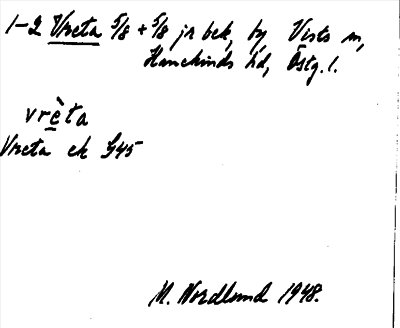 1-2 Vreta 5/8 + 5/8 jr bek, by Vists sn,
Hanekinds hd, Östg. l.
vrèta
Vreta ek G45
M. Nordlund 1948.